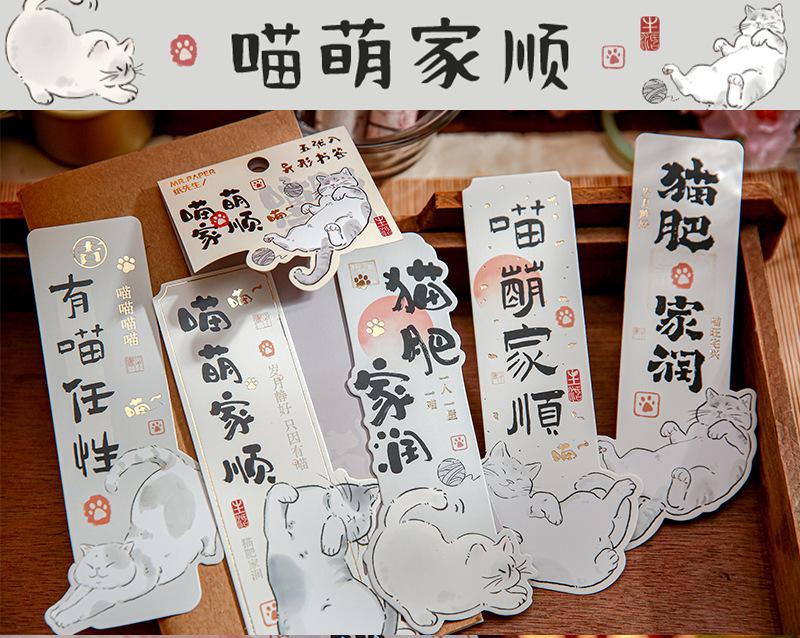 喵萌家顺
MR.PAPER
纸先生/
五张入
异形书签
喵萌
家顺
喵
有喵任性
喵喵喵喵
喵~
喵萌家顺
喵~
岁月静好 只因有喵
猫肥家润
猫肥
家润
一人一屋
一喵
喵萌家順
猫肥
家润
岁月静好
喵旺宅兴